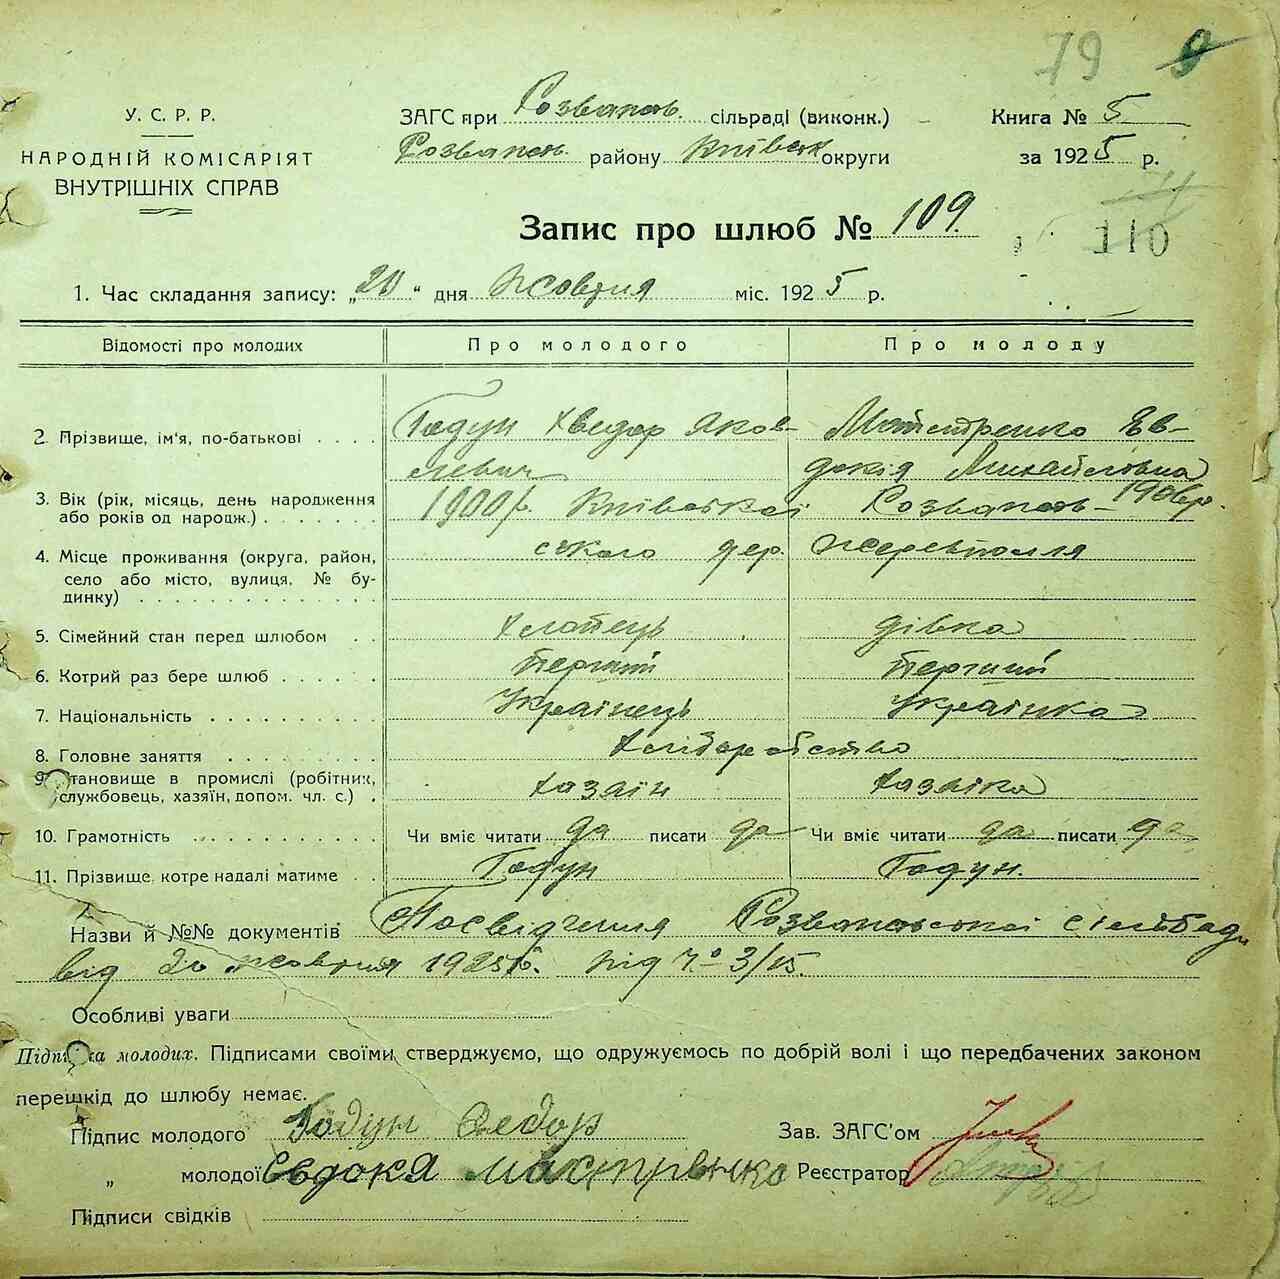 79 9
У. С. Р. Р.
НАРОДНІЙ КОМІСАРІЯТ
ВНУТРІШНІХ СПРАВ
ЗАГС при Розважів. сільраді (виконк.)
Розважів. району Київськ округи
Книга № 5
за 1925 р.
Запис про шлюб № 109.
110
1. Час складання запису: „20“ дня Жовтня міс. 1925 р.
Відомості про молодих Про молодого Про молоду
2. Прізвище, ім'я, по-батькові Годун Хведор Яков- Майстренко Єв-
левич докія Михайловна
3. Вік (рік, місяць, день народження або років од народж.) 1900 р. Київської Розважів- 1906 р.
4. Місце проживання (округа, район, село або місто, вулиця, № будинку) ського дер. Жеревпілля
5. Сімейний стан перед шлюбом хлопець дівка
6. Котрий раз бере шлюб Перший Перший
7. Національність Українець Українка
8. Головне заняття хліборобство
9. Становище в промислі (робітник, службовець, хазяїн, допом. чл. с.) хазаїн хазаїка
10. Грамотність Чи вміє читати да писати да Чи вміє читати да писати да
11. Прізвище, котре надалі матиме Годун Годун.
Назви й №№ документів Посвідчення Розважівської сільради
від 20 жовтня 1925 р. під № 3/15.
Особливі уваги
Підписка молодих. Підписами своїми стверджуємо, що одружуємось по добрій волі і що передбачених законом
перешкід до шлюбу немає.
Підпис молодого Годун Федор Зав. ЗАГС'ом
„ молодої Євдокя Реєстратор
Підписи свідків